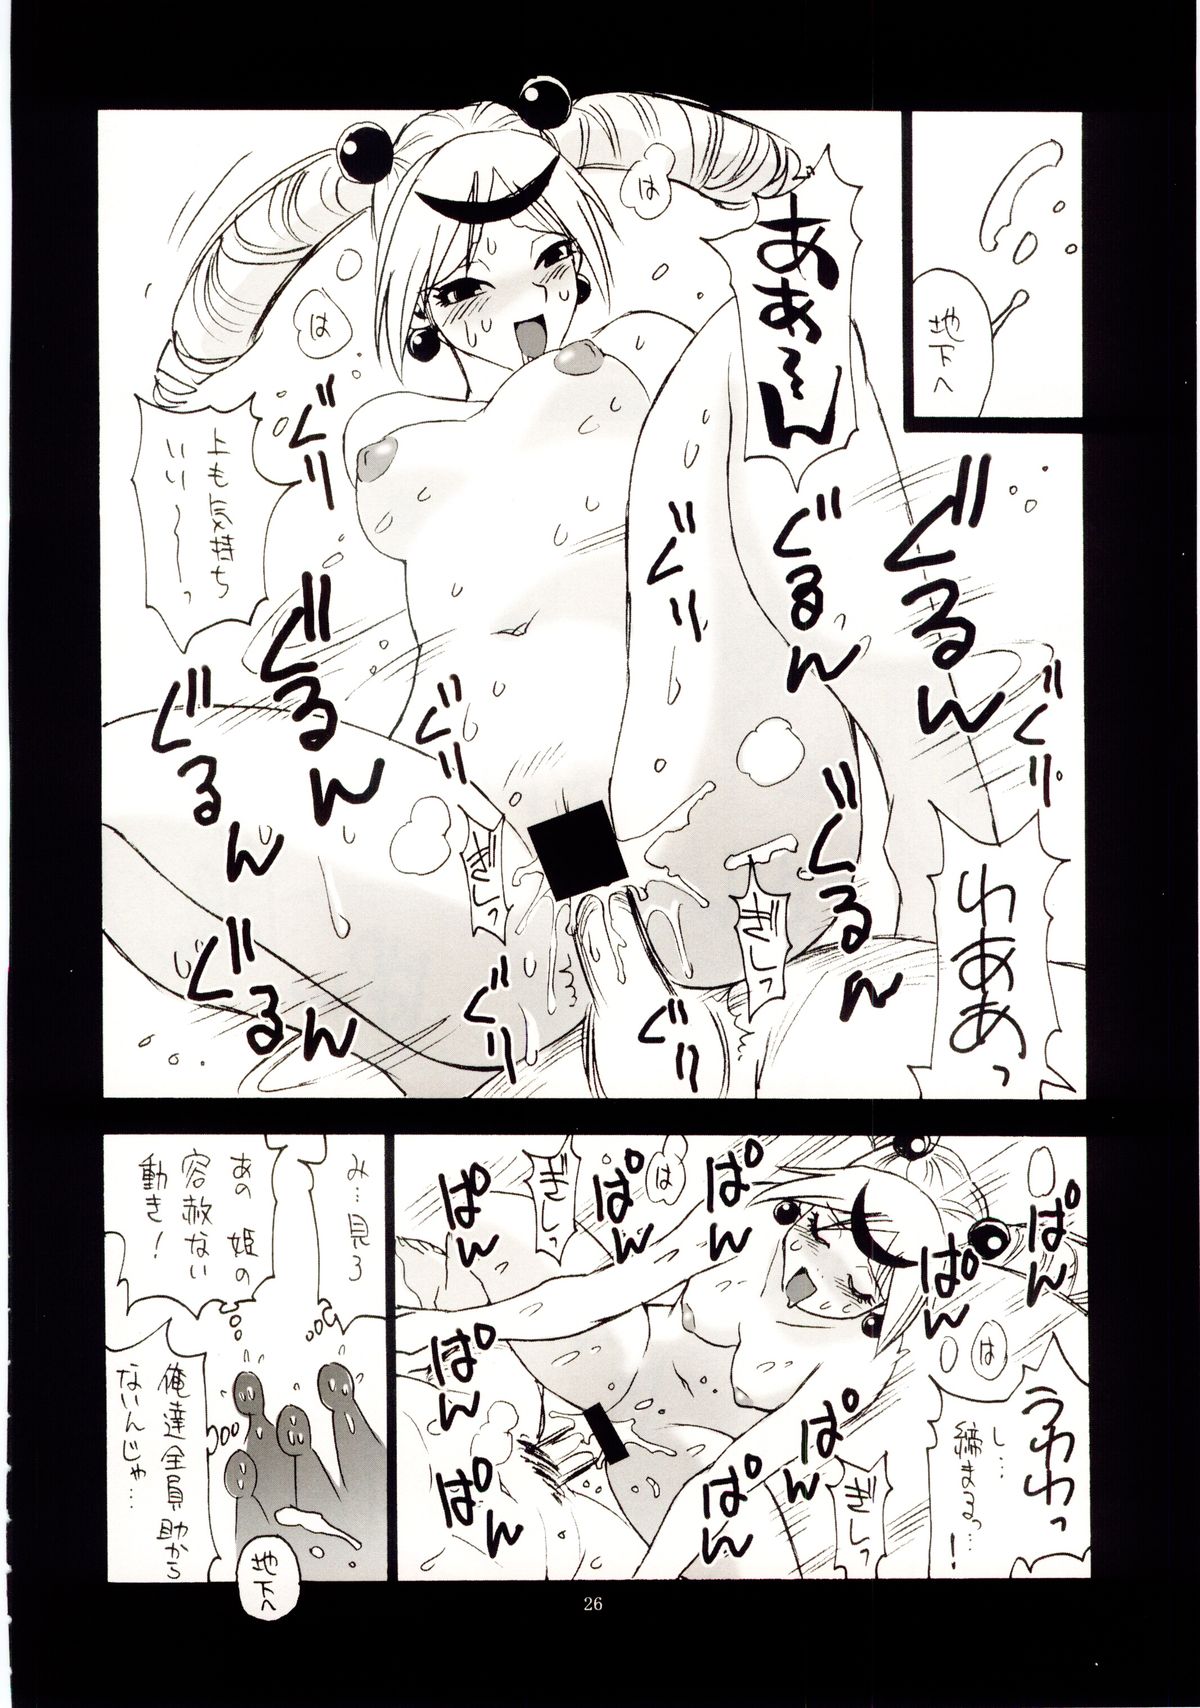 地下へ
あぁ～ん
は
は
上も気持ち
いい～～っ
ぐるんっ
ぐるんっ
ぐり
ぐり
ぐり
わああっ
ぐるん
ぐるん
ぐり
ぎしっ
ぎしっ
ぐるん
ぐるん
ぐり
ぐり
うわわっ
し…
締まるっ…！
は
は
ぱん
ぱん
ぱん
ぱん
ぱん
ぎしっ
ぱん
ぱん
ぱん
ぱん
ぎしっ
み…見ろ
あの 姫の
容赦ない
動き！
俺達全員助から
ないんじゃ…
地下へ
26